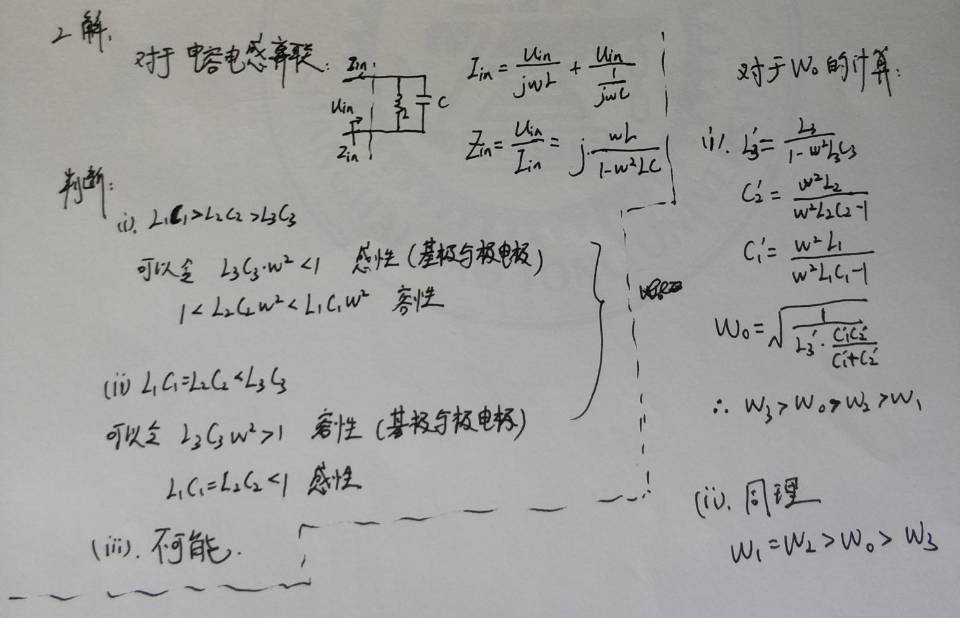 2解.
对于电容电感并联:
Iin
Uin
Zin
L
C
Iin = Uin/(jwL) + Uin/(1/(jwC))
Zin = Uin/Iin = j·wL/(1-w²LC)
判断:
(i). L₁C₁>L₂C₂>L₃C₃
可以令 L₃C₃·w²<1 感性(基极与极电极)
1<L₂C₂w²<L₁C₁w² 容性
(ii) L₁C₁=L₂C₂<L₃C₃
可以令 L₃C₃w²>1 容性(基极与极电极)
L₁C₁=L₂C₂<1 感性
(iii). 不可能.
对于W₀的计算:
(i). L₃'=L₃/(1-w²L₃C₃)
C₂'=w²L₂/(w²L₂C₂-1)
C₁'=w²L₁/(w²L₁C₁-1)
W₀=√(1/(L₃'·C₁'C₂'/(C₁'+C₂')))
∴ W₃>W₀>W₂>W₁
(ii). 同理
W₁=W₂>W₀>W₃